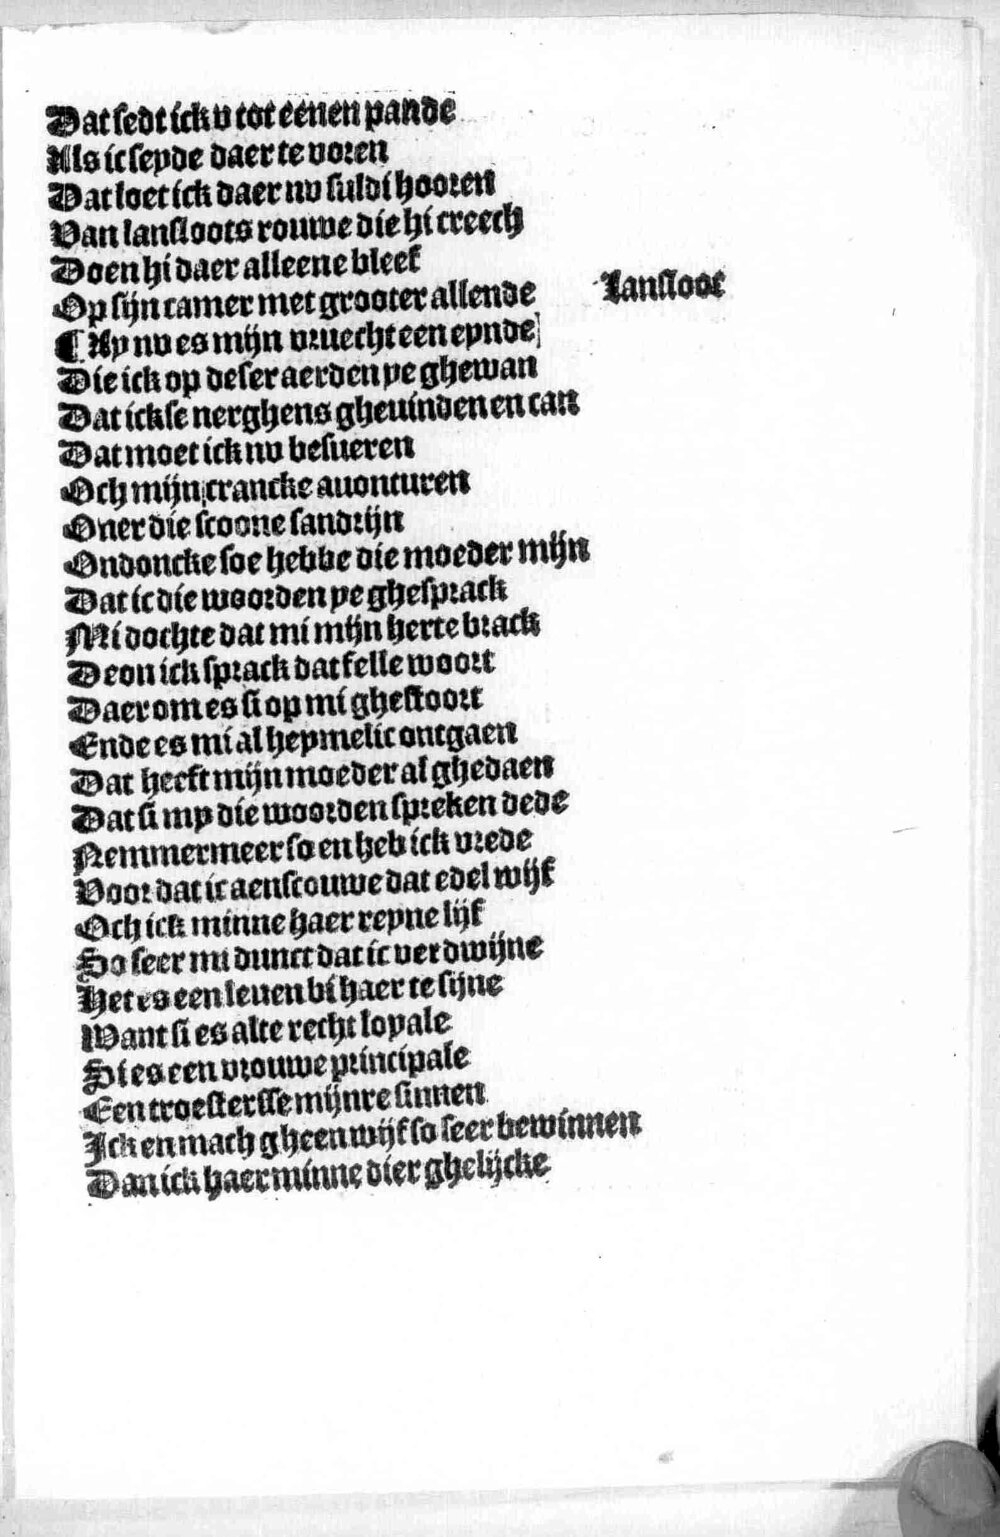 Dat sedt ick v tot eenen pande
Als ic seyde daer te voren
Dat loet ick daer nv suldi hooren
Van lansloots rouwe die hi creech
Doen hi daer alleene bleef
Op sijn camer met grooter allende
Lansloot
¶ Ay nv es mijn vruecht een eynde
Die ick op deser aerden ye ghewan
Dat ickse nerghens gheuinden en can
Dat moet ick nv besueren
Och mijn crancke auonturen
Ouer die scoone sandrijn
Ondoncke soe hebbe die moeder mijn
Dat ic die woorden ye ghesprack
Mi dochte dat mi mijn herte brack
Deon ick sprack dat felle woort
Daer om es si op mi ghestoort
Ende es mi al heymelic ontgaen
Dat heeft mijn moeder al ghedaen
Dat si my die woorden spreken dede
Nemmermeer so en heb ick vrede
Voor dat ic aenscouwe dat edel wijf
Och ick minne haer reyne lijf
So seer mi dunct dat ic verdwijne
Het es een leuen bi haer te sijne
Want si es alte recht loyale
Si es een vrouwe principale
Een troestersse mijnre sinnen
Ick en mach gheen wijf so seer bewinnen
Dan ick haer minne dier ghelijcke